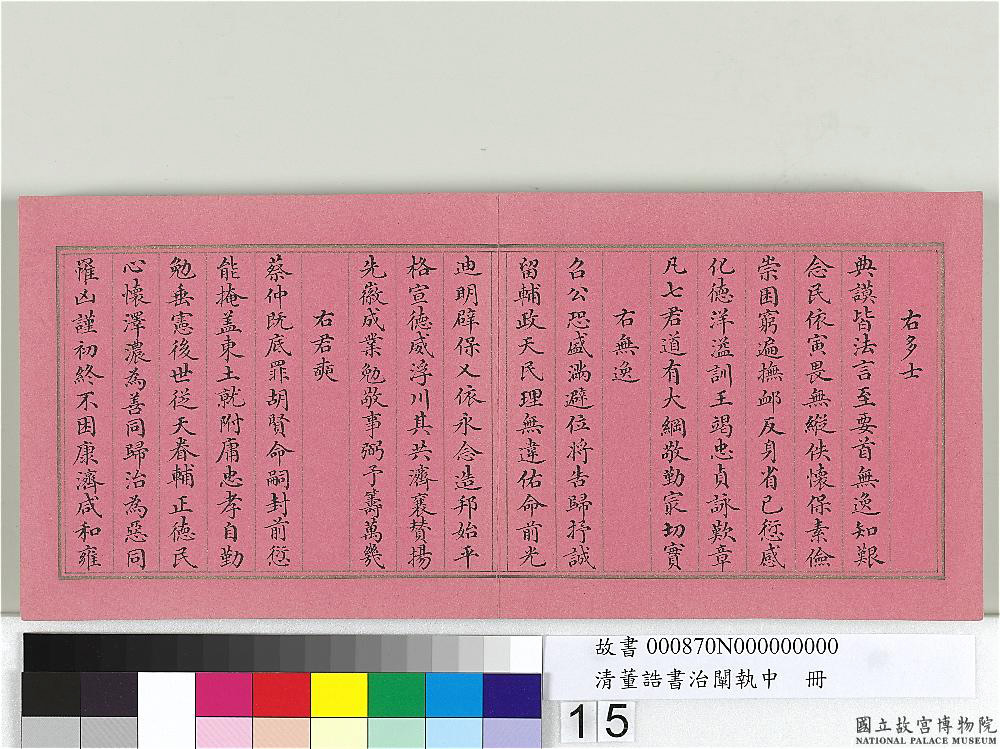 右多士
典謨皆法言至要首無逸知艱
念民依寅畏無縱佚懷保素儉
崇困窮遍撫卹反身省已愆感
化德洋溢訓王竭忠貞詠歎章
凡七君道有大綱敬勤㝡切實
右無逸
召公恐盛滿避位將告歸抒誠
留輔政天民理無違佑命前光
迪明辟保乂依永念造邦始平
格宣德威浮川其共濟襄賛揚
先徽成業勉敬事弼予籌萬幾
右君奭
蔡仲既底罪胡賢命嗣封前愆
能掩盖東土就附庸忠孝自勤
勉垂憲後世從天眷輔正德民
心懷澤濃為善同歸治為惡同
罹凶謹初終不困康濟咸和雍
故書 000870N000000000
清董誥書治闡執中 冊
15
國立故宮博物院
NATIONAL PALACE MUSEUM